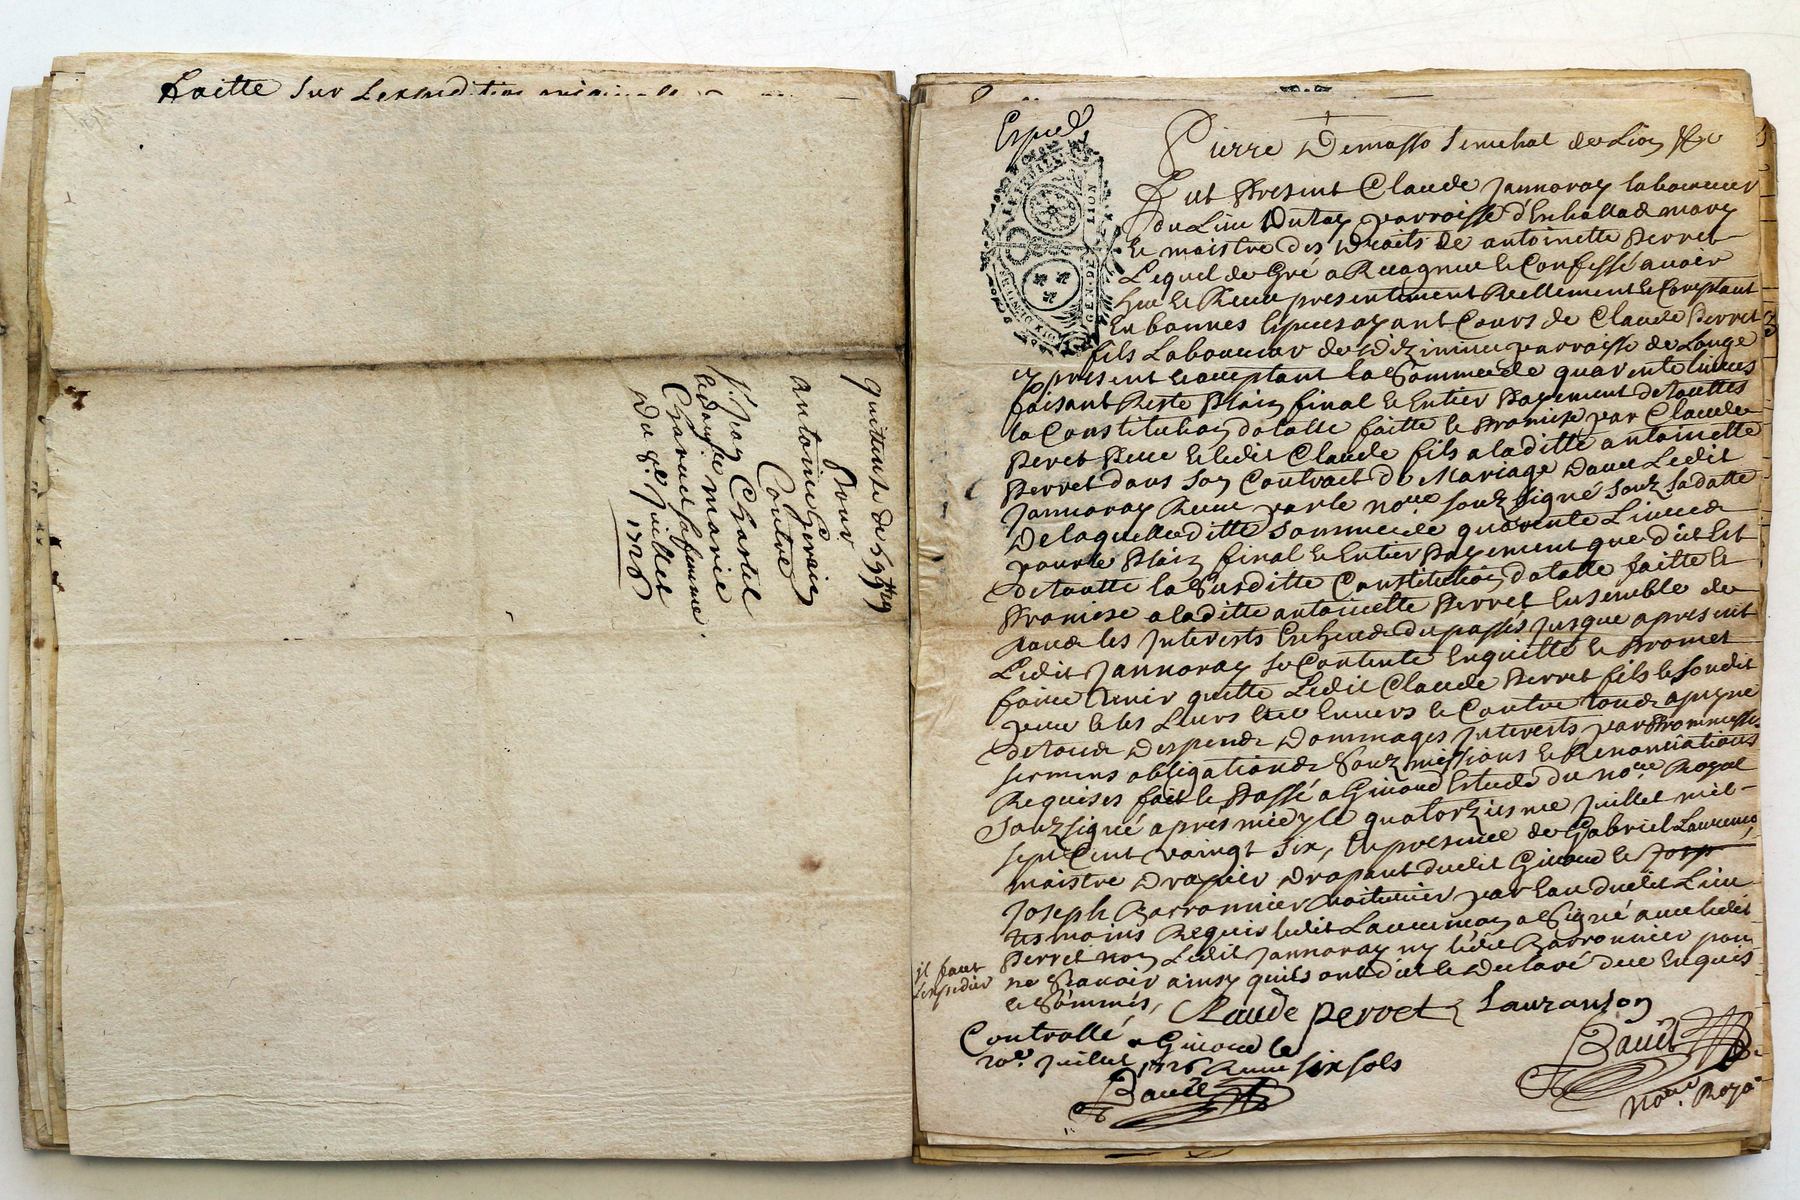 faitte Sur Lexpedition originale
quittance de 59 ₶ 19
Pour
antoine Gerain
Contre
Sr. Jean Chastel
et damlle marie
Charuel sa femme.
Du 9e Juillet
1726
Expedié
GEN. DE LION
Pierre Demasso Senechal de Lion &c
Fut Present Claude Jannoray laboureur
du Lieu Dutay parroisse d'Enhallade mary
et maistre des Droits de antoinette Perret
Lequel de Gré a Recognu et Confessé auoir
heu et Receu presentement Reellement et Comptant
En bonnes Especes ayant Cours de Claude Perret
fils Laboureur de parroisse de Longe
cy present et acceptant la Somme de quarente liures
faisant Reste Plain final et Entier Payement de touttes
la Constitution dotalle faitte et Promise par Claude
Peret Pere et ledit Claude fils a laditte antoinette
Perret dans son Contract de Mariage Dauec Ledit
Jannoray Receu par le nore souz signé souz sa datte
De laquelle ditte somme de quarente Liures
pour le Plain final et Entier Payement que d'ict Est
de toutte la Susditte Constitution dotalle faitte et
Promise a laditte antoinette Perret Ensemble de
tous les Interests Escheus du passés jusque apresent
Ledit Jannoray se Contente En quitte et Promet
faire Tenir quitte Ledit Claude Perret fils et sondit
pere et les Leurs Enuers et Contre tous a peyne
de tous Despens Dommages Interests par Prommesses
sermens obligations Souzmissions et Renonciations
Requises fait et Passé a Giuord Estude du nore Royal
Souzsigné apres midy le quatorziesme Juillet mil
sept Cent vaingt Six, En presence de Gabriel Lauranson
maistre Drapier Drapant dudit Giuord et Josp
Joseph Barronnier voiturier par Eau dudit Lieu
tesmoins Requis ledit Lauranson a Signé auec ledit
Perret non Ledit Jannoray ny ledit Barronnier pour
ne Scauoir ainsy quils ont dit et Declaré de ce Enquis
et Sommés,
il faut
l'expedier
Claude perret Lauranson
Controllé a Giuord le
20e. Juillet 1726 Receu six sols
Bauët
Bauët
Nore. Royal